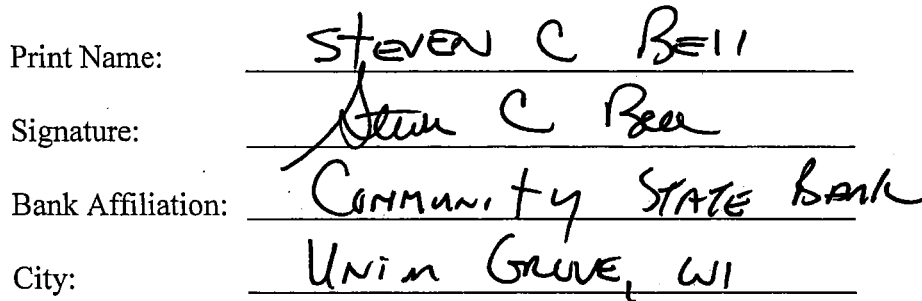 Print Name: STEVEN C BEll
Signature: Steven C Bell
Bank Affiliation: COMMUNITY STATE BANK
City: UNION GROVE, WI